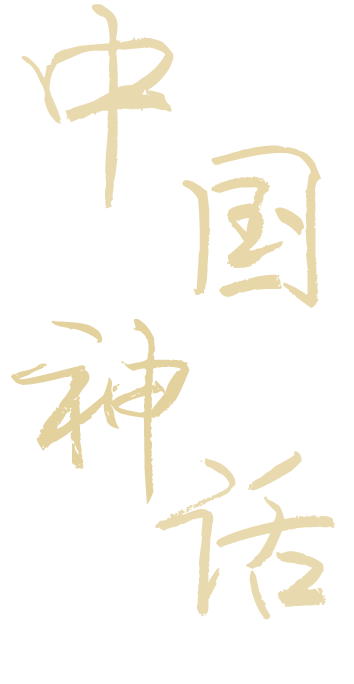 中国神话